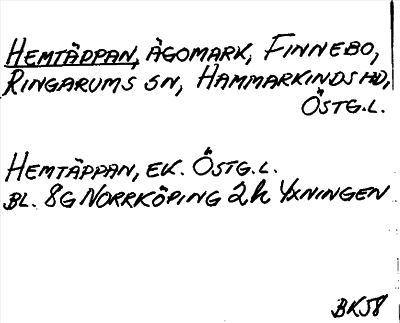 HEMTÄPPAN, ÄGOMARK, FINNEBO,
RINGARUMS SN, HAMMARKINDS HD,
ÖSTG.L.
HEMTÄPPAN, EK. ÖSTG.L.
BL. 8G NORRKÖPING 2h YXNINGEN
BK58